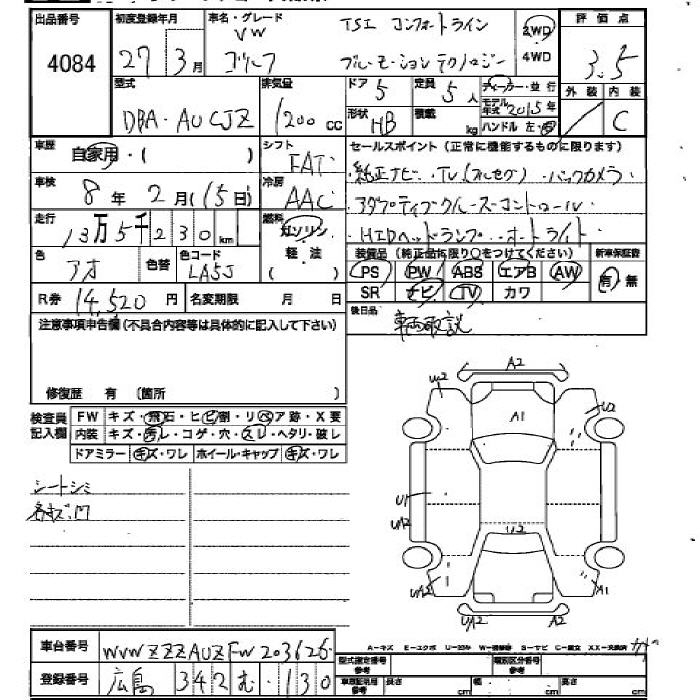 出品番号 初度登録年月 車名・グレード 評価点
4084 27年 3月 VW ゴルフ TSI コンフォートライン ブルーモーションテクノロジー 2WD 4WD 3.5
型式 排気量 ドア 定員 ディーラー・並行 外装 内装
DBA-AUCJZ 1200cc 5 5人 モデル年式 2015年 C
形状 HB 積載 kg ハンドル 左・右
車歴 自家用・( ) シフト FAT セールスポイント(正常に機能するものに限ります)
車検 8年 2月(15日) 冷房 AAC ・純正ナビ・TV(フルセグ)・バックカメラ
・アダプティブクルーズコントロール
走行 13万5千230km 燃料 ガソリン 軽・油 ( ) ・HIDヘッドランプ・オートライト
色 アオ 色替 色コード LA5J 装備品(純正品に限り○をつけてください) 新車保証書
PS PW ABS エアB AW 有・無
SR ナビ TV カワ
R券 14,520円 名変期限 月 日 後日品 車両取説
注意事項申告欄(不具合内容等は具体的に記入して下さい)
修復歴 有 〔箇所 〕
検査員記入欄 FW キズ・飛石・ヒビ割・リペア跡・X要
内装 キズ・汚レ・コゲ・穴・スレ・ヘタリ・破レ
ドアミラー キズ・ワレ ホイール・キャップ キズ・ワレ
シートシミ
各キズ、凹
A2
U2 A1 U2
U1
UA2 U2
UA2 A1
UA2 A2
A-キズ E-エクボ U-凹み W-補修跡 S-サビ C-腐立 XX-交換済
車台番号 WVWZZZAUZFW203626
型式指定番号 参考 類別区分番号 参考
登録番号 広島 342 む 130
車庫証明用 参考 長さ cm 幅 cm 高さ cm